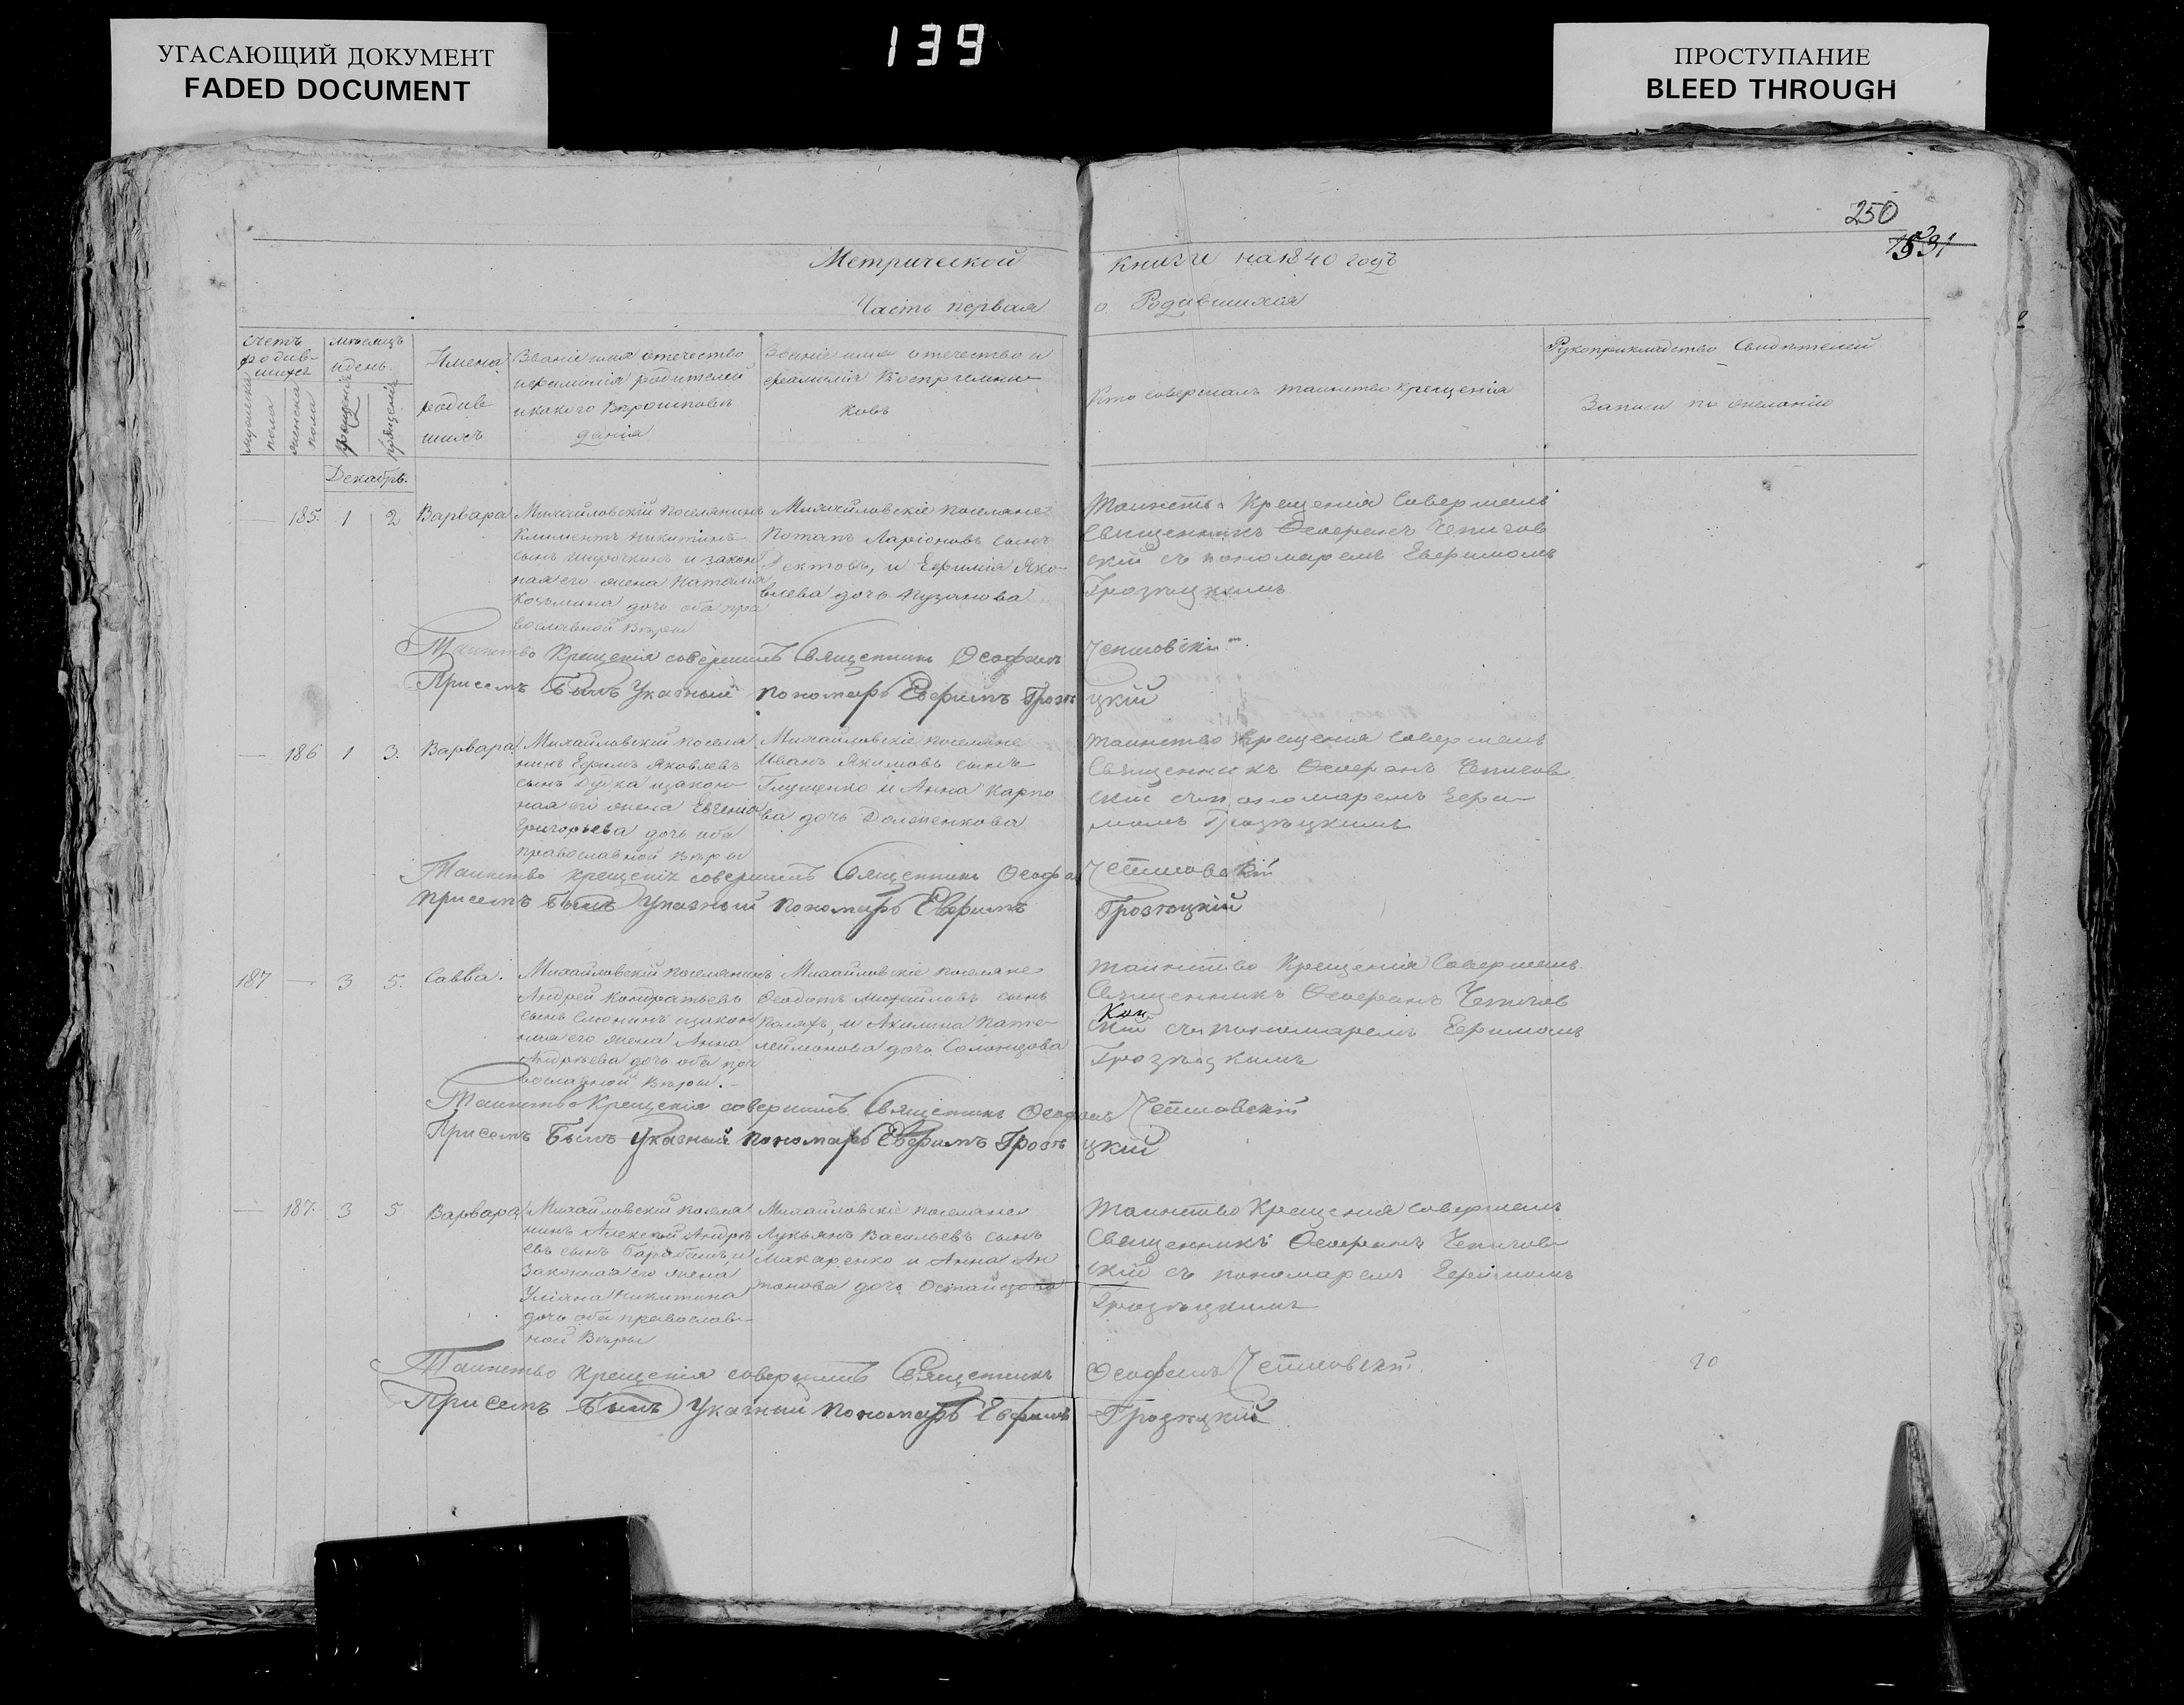 УГАСАЮЩИЙ ДОКУМЕНТ
FADED DOCUMENT
139
ПРОСТУПАНИЕ
BLEED THROUGH
250
Метрической книги на 1840 годъ
Часть первая о Родившихся
Счетъ
родив-
шихся
мужеска
пола
женска
пола
мѣсяцъ
и день
рожденія
крещенія
Имена
родив
шихъ
Званіе имя отечество
и фамилія родителей
и какого Вѣроисповѣ
данія
Званіе имя отечество и
фамилія Воспріемни-
ковъ
Кто совершалъ таинство крещенія
Рукоприкладство Свидѣтелей
Записи по желанію
Декабрь.
185. 1 2 Варвара
Михайловскій поселянинъ
Климентъ Никитинъ
сынъ и закон
ная его жена Наталия
Козьмина дочь оба пра
вославной Вѣры
Михайловскіе поселяне
Потапъ Ларіоновъ сынъ
и Ефимія Яко-
влева дочь Пузанова
Таинство Крещенія Совершалъ
Священникъ Феофанъ
скій съ пономаремъ Евфимомъ
Грозѣцкимъ
Таинство Крещенія совершилъ Священникъ Феофанъ
При семъ Былъ Указный пономарь Евфимъ Грозѣцкій
186 1 3. Варвара
Михайловскій поселя
нинъ Ефимъ Яковлевъ
сынъ Дудка и закон
ная его жена Евгенія
Григорьева дочь оба
православной Вѣры
Михайловскіе поселяне
Иванъ Якимовъ сынъ
Глущенко и Анна Карпо
ва дочь Долженкова
Таинство Крещенія Совершалъ
Священникъ Феофанъ
скій съ пономаремъ Ефи-
момъ Грозѣцкимъ
Таинство крещенія совершилъ Священникъ Феофанъ
При семъ Былъ Указный пономарь Евфимъ Грозѣцкій
187 — 3 5. Савва.
Михайловскій поселянинъ
Андрей Кондратьевъ
сынъ и закон
ная его жена Анна
Андрѣева дочь оба пра
вославной Вѣры.
Михайловскіе поселяне
Феодотъ Михайловъ сынъ
и Акилина Панте-
леймонова дочь
Таинство Крещенія Совершалъ
Священникъ Феофанъ
скій съ пономаремъ Ефимомъ
Грозѣцкимъ
Таинство Крещенія совершилъ Священникъ Феофанъ
При семъ Былъ Указный пономарь Евфимъ Грозѣцкій
— 187. 3 5 Варвара
Михайловскій поселя
нинъ Алексѣй Андрѣ
евъ сынъ и
законная его жена
Уліяна Никитина
дочь оба православ-
ной Вѣры
Михайловскіе поселяне
Лукьянъ Васильевъ сынъ
Макаренко и Анна Ан
тонова дочь
Таинство Крещенія Совершалъ
Священникъ Феофанъ
скій съ пономаремъ Ефимомъ
Грозѣцкимъ
Таинство крещенія совершилъ Священникъ Феофанъ
При семъ Былъ Указный пономарь Евфимъ Грозѣцкій